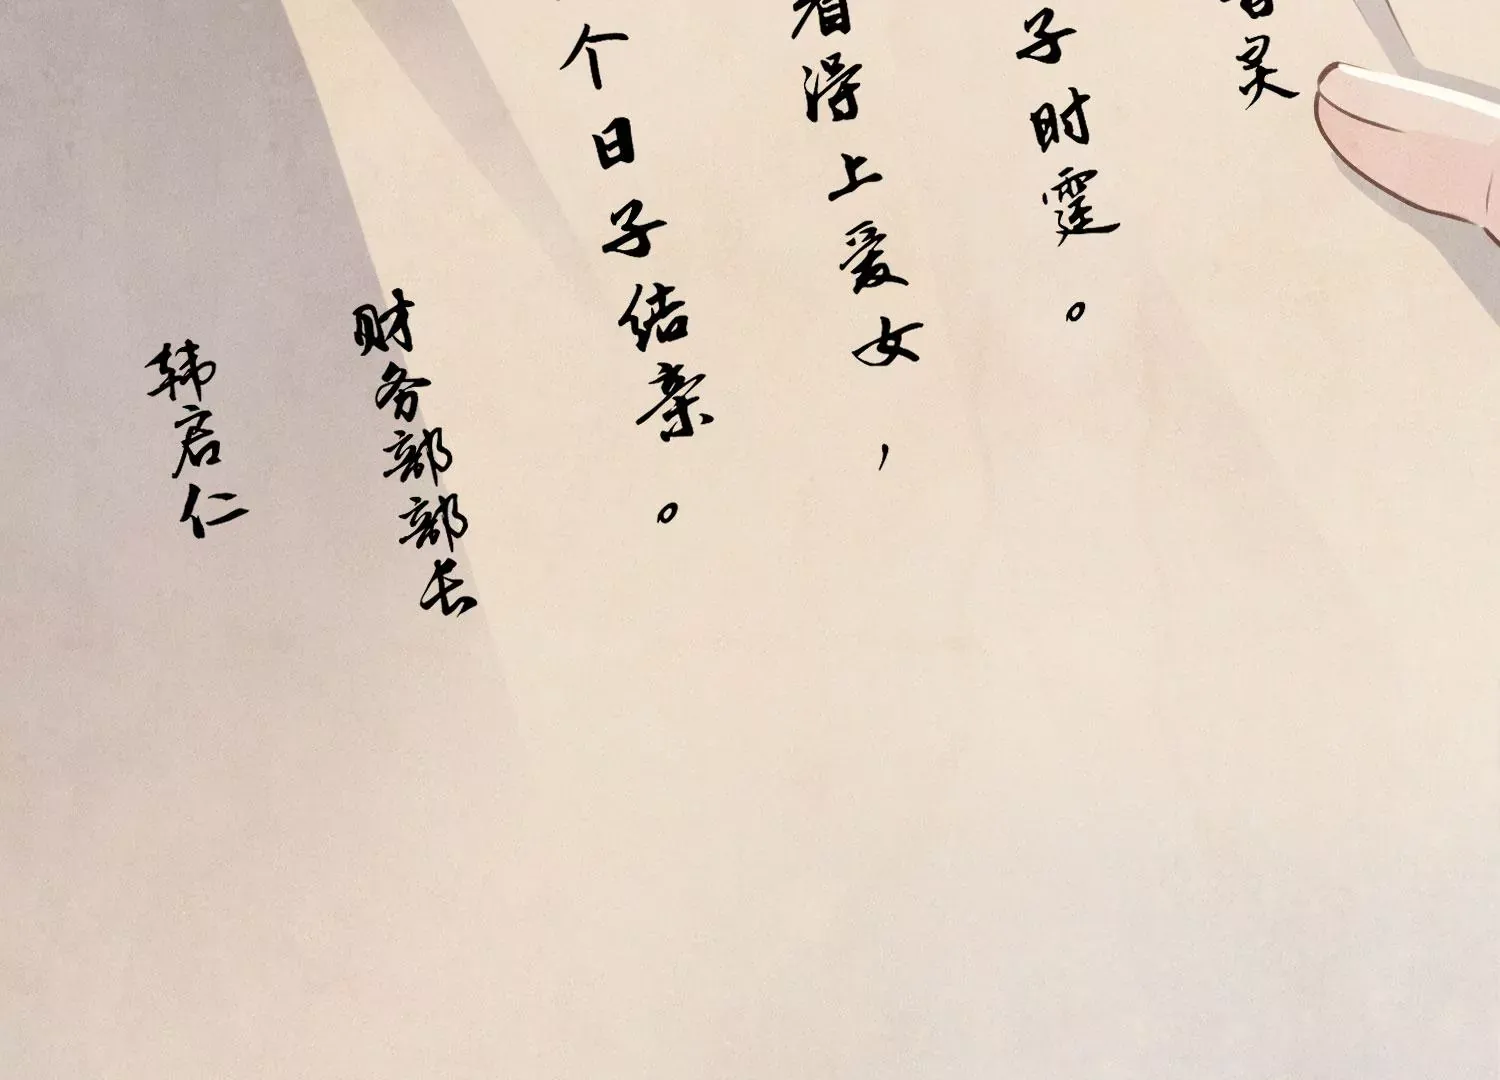 灵
子时霆。
看得上爱女，
个日子结亲。
财务部部长
韩启仁